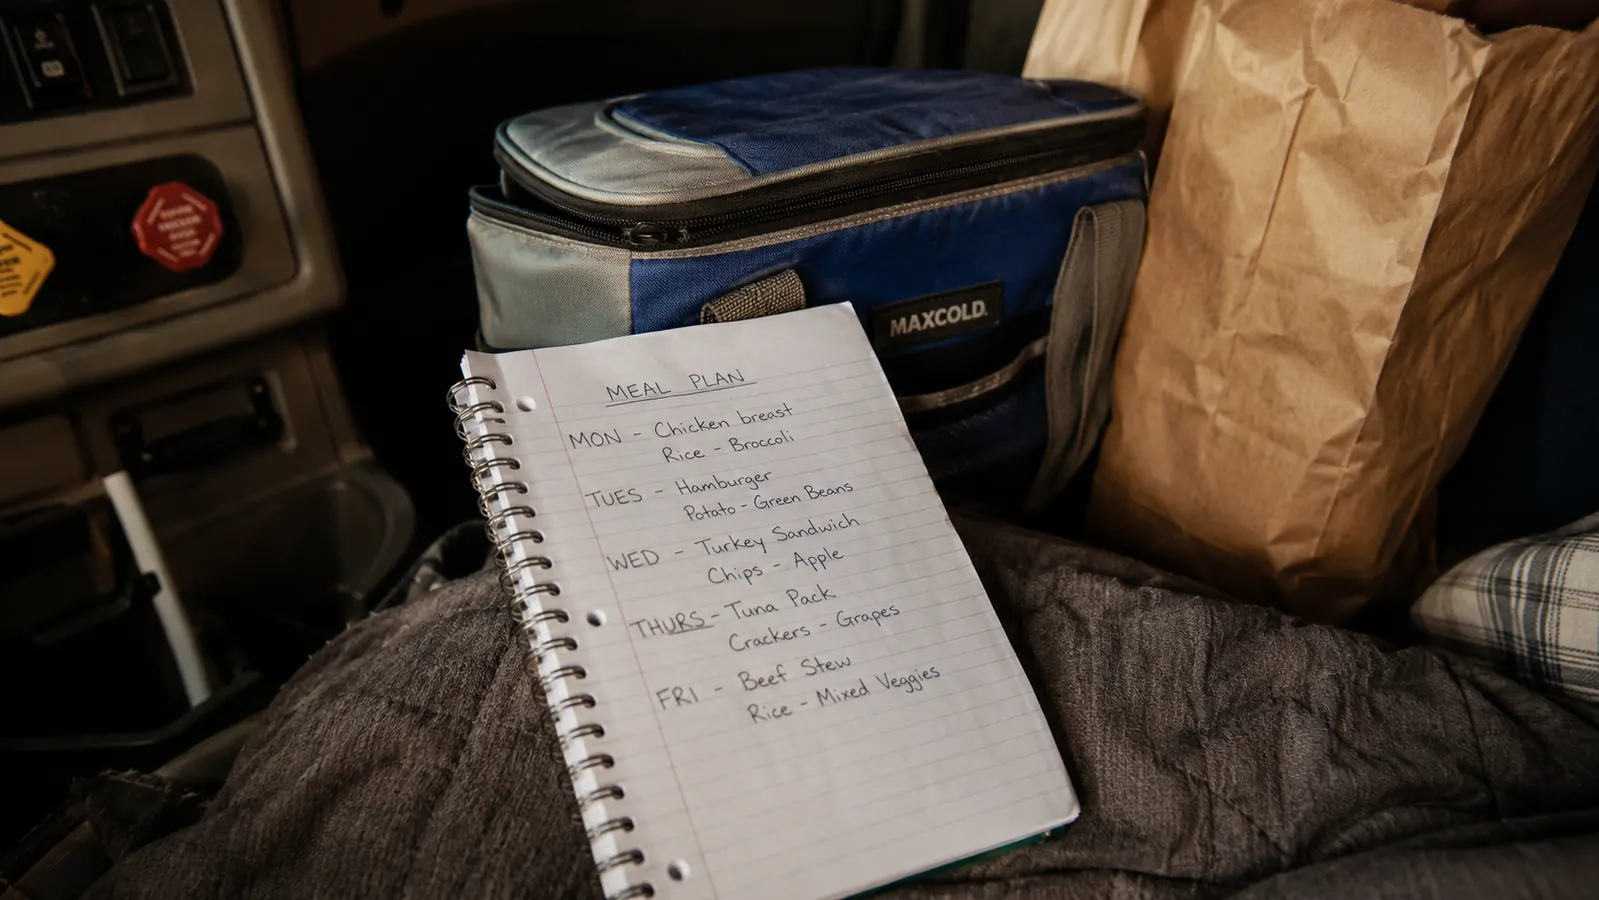 MAXCOLD
MEAL PLAN
MON - Chicken breast
Rice - Broccoli
TUES - Hamburger
Potato - Green Beans
WED - Turkey Sandwich
Chips - Apple
THURS - Tuna Pack
Crackers - Grapes
FRI - Beef Stew
Rice - Mixed Veggies